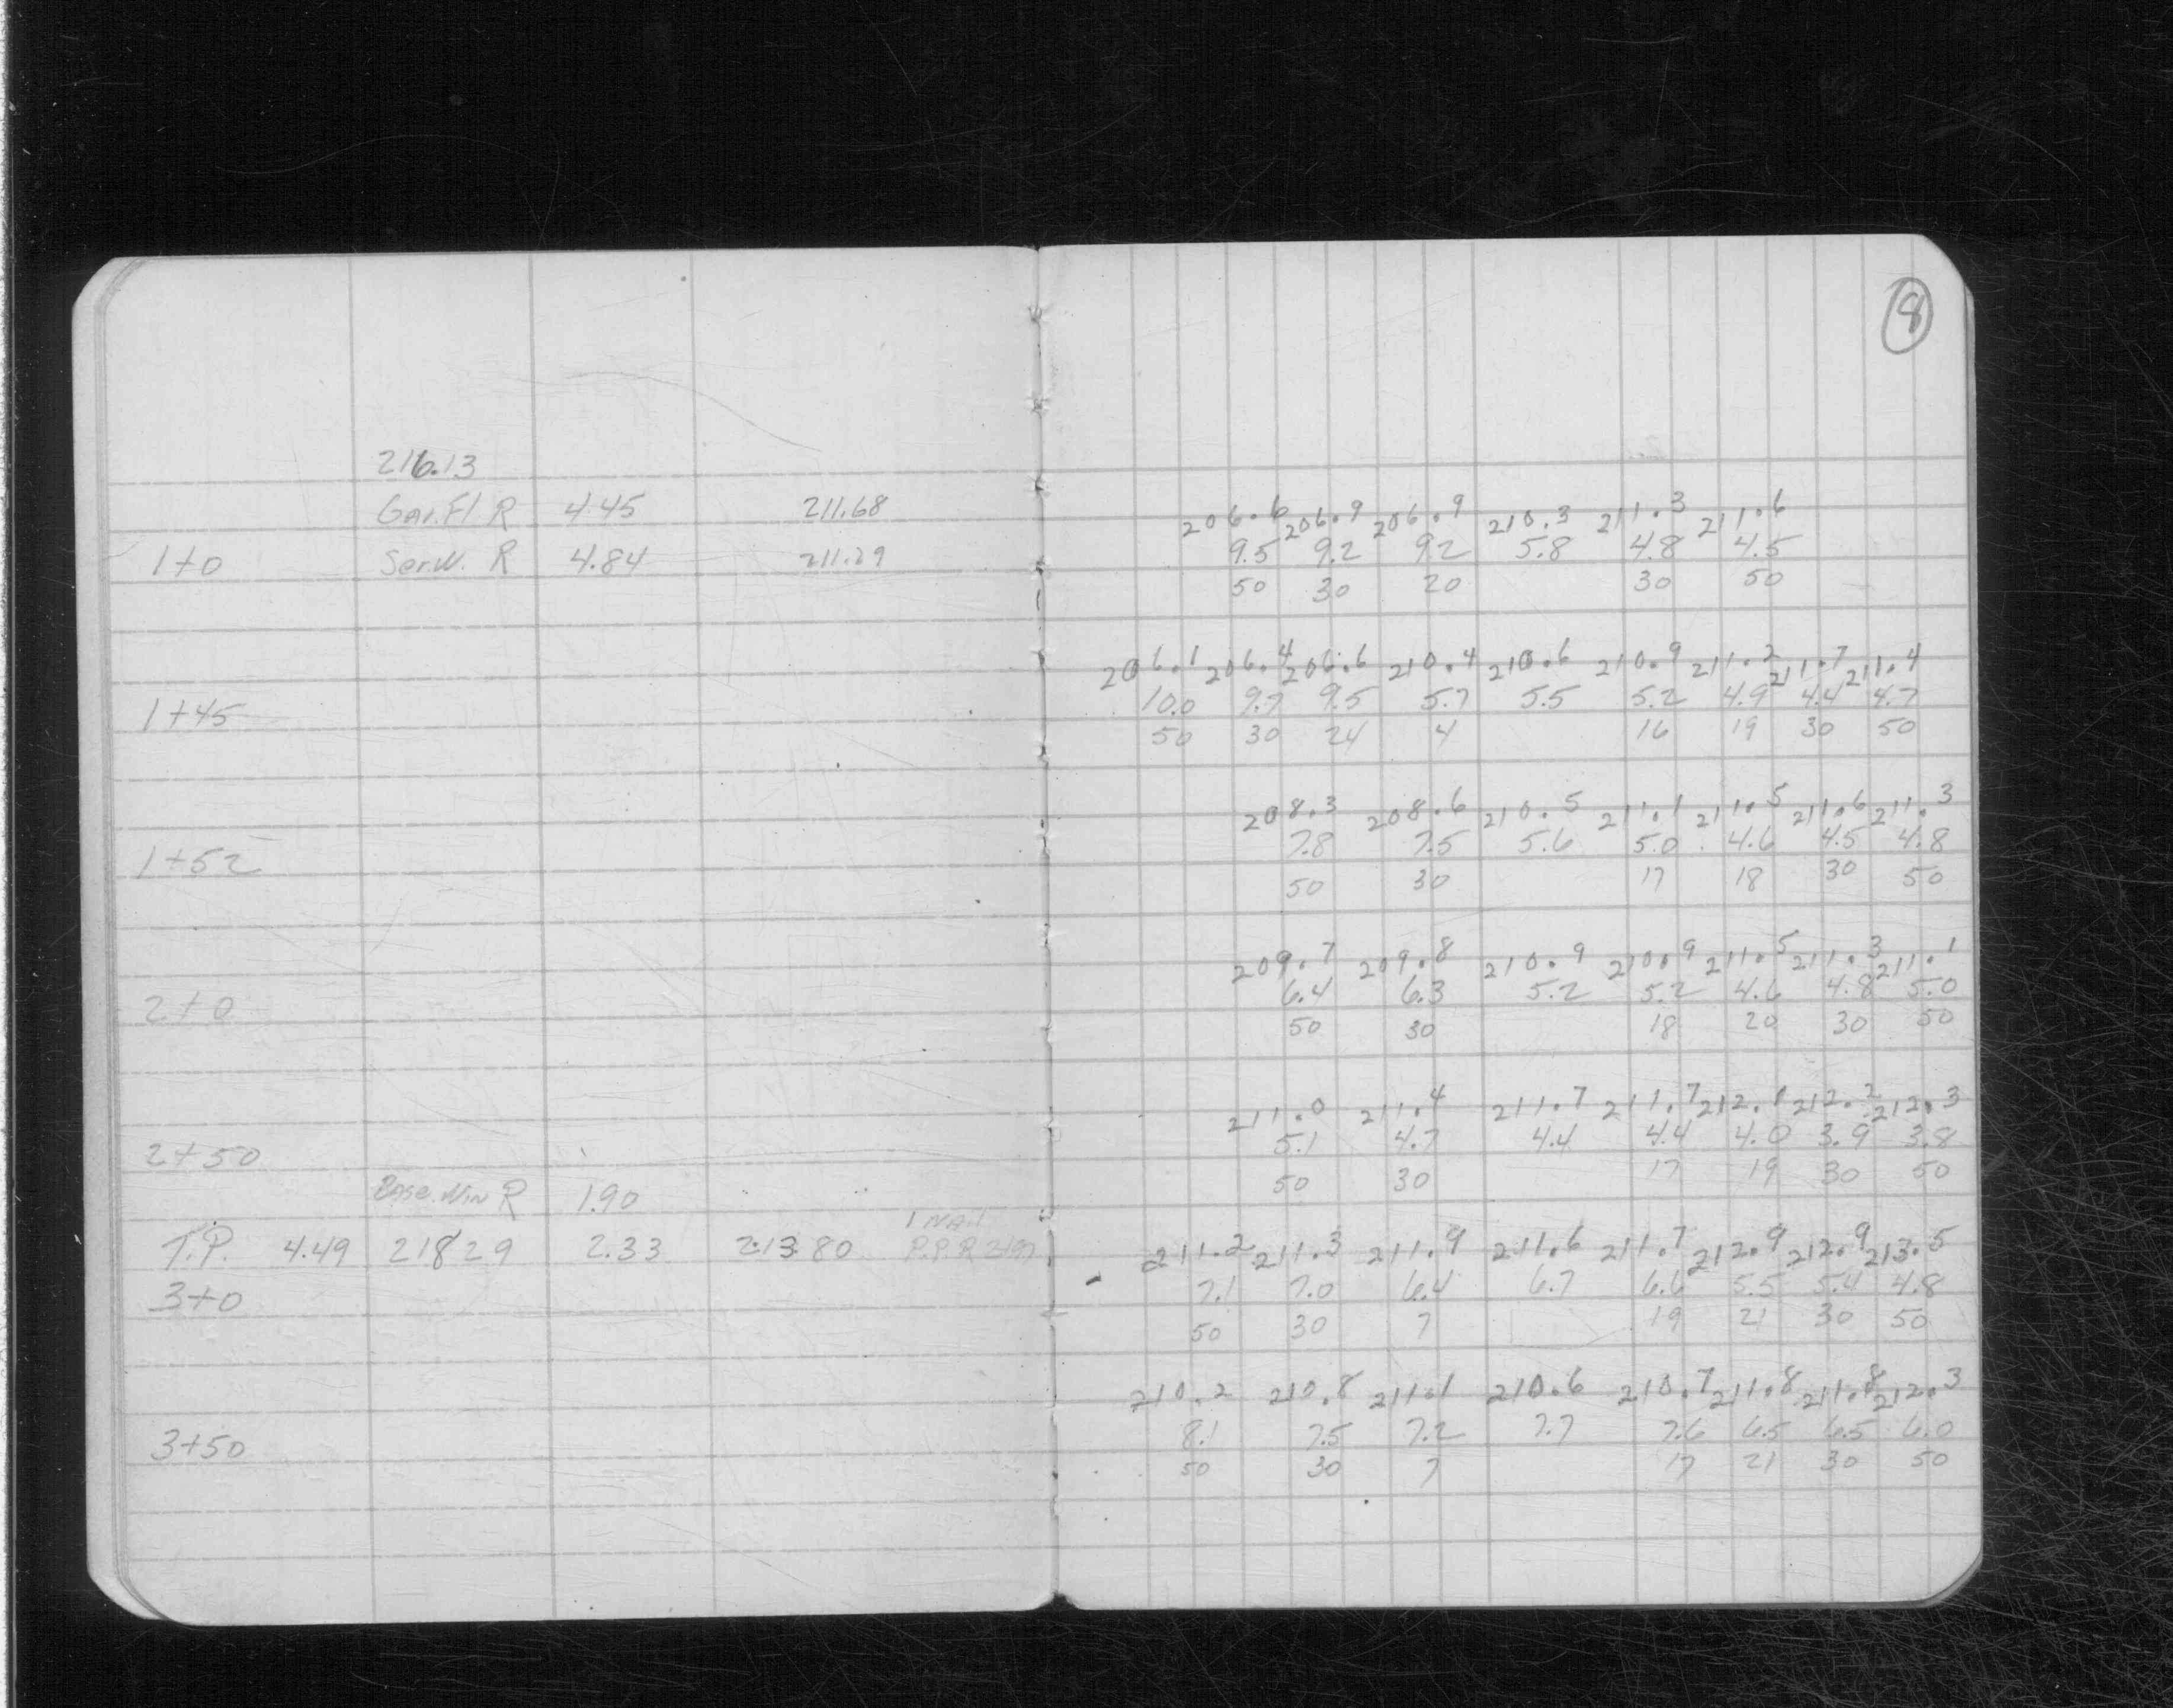 8
216.13
Gar.Fl. R 4.45 211.68
206.6 206.9 206.9 210.3 211.3 211.6
1+0 Ser.W. R 4.84 211.29 9.5 9.2 9.2 5.8 4.8 4.5
50 30 20 30 50
206.1 206.4 206.6 210.4 210.6 210.9 211.2 211.7 211.4
1+45 10.0 9.7 9.5 5.7 5.5 5.2 4.9 4.4 4.7
50 30 24 4 16 19 30 50
208.3 208.6 210.5 211.1 211.5 211.6 211.3
1+52 7.8 7.5 5.6 5.0 4.6 4.5 4.8
50 30 17 18 30 50
209.7 209.8 210.9 210.9 211.5 211.3 211.1
2+0 6.4 6.3 5.2 5.2 4.6 4.8 5.0
50 30 18 20 30 50
211.0 211.4 211.7 211.7 212.1 212.2 212.3
2+50 5.1 4.7 4.4 4.4 4.0 3.9 3.8
Base.Win R 1.90 50 30 17 19 30 50
1 Nail
T.P. 4.49 218.29 2.33 213.80 P.P.R 211.2 211.3 211.9 211.6 211.7 212.9 212.9 213.5
3+0 7.1 7.0 6.4 6.7 6.6 5.5 5.4 4.8
50 30 7 19 21 30 50
210.2 210.8 211.1 210.6 210.7 211.8 211.8 212.3
3+50 8.1 7.5 7.2 7.7 7.6 6.5 6.5 6.0
50 30 7 17 21 30 50